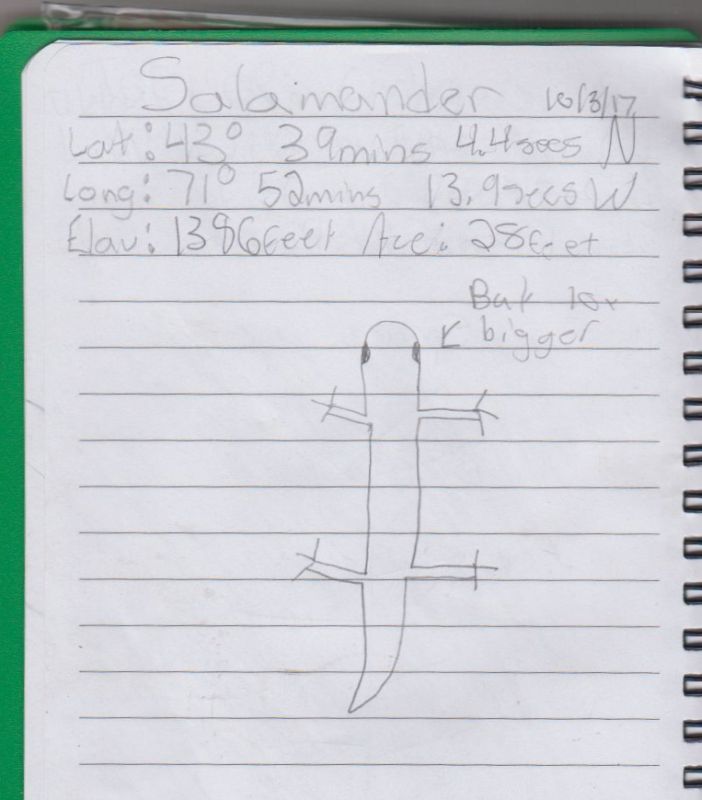 Salamander 10/3/17
Lat: 43° 39mins 4.4secs N
Long: 71° 52mins 13.9secs W
Elav: 1396feet Acc: 28feet
But 10x
bigger